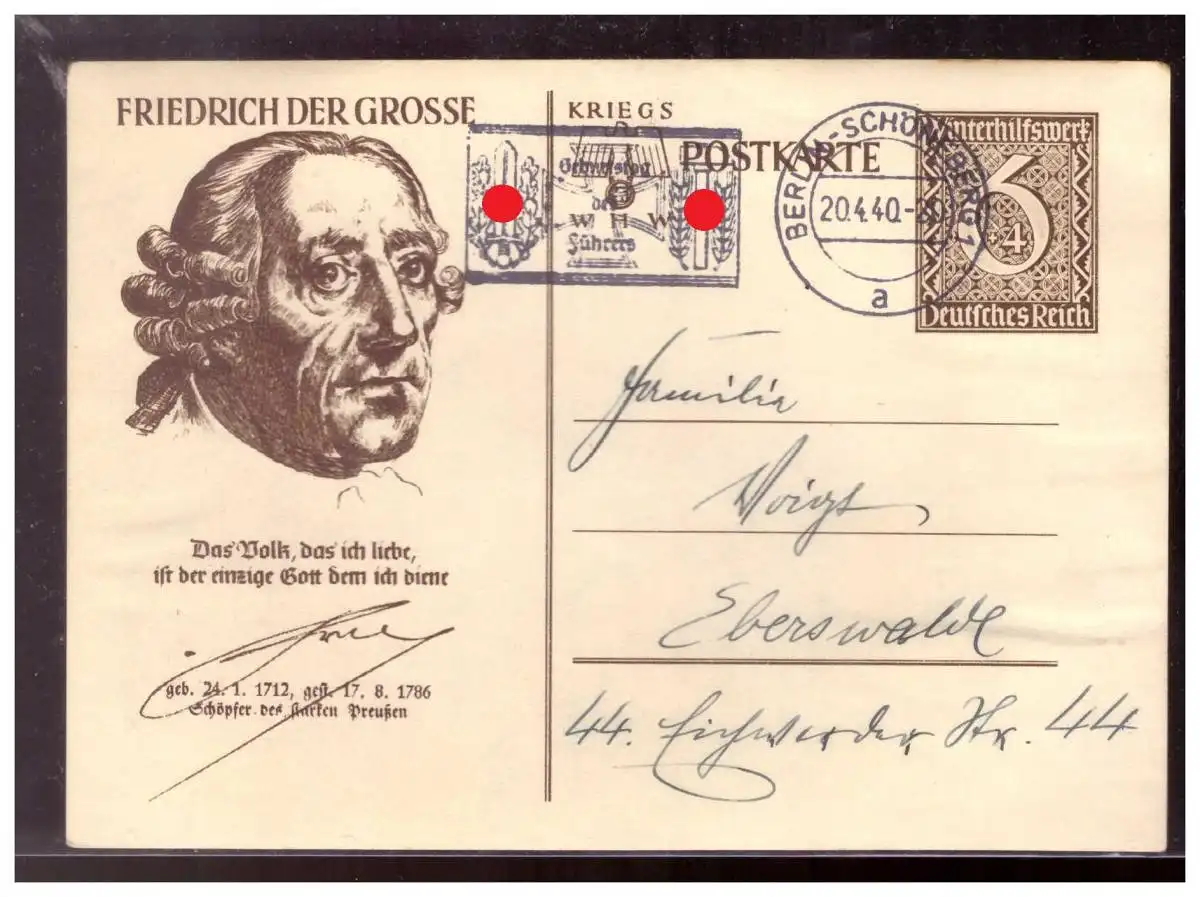 FRIEDRICH DER GROSSE
Das Volk, das ich liebe,
ist der einzige Gott dem ich diene
geb. 24. 1. 1712, gest. 17. 8. 1786
Schöpfer des starken Preußen
KRIEGS
POSTKARTE
Geburtstag
des
W H W
Führers
BERLIN-SCHÖNEBERG 1
20.4.40.-20
a
Winterhilfswerk
6
+4
Deutsches Reich
Familie
Voigt
Eberswalde
44. Eichwerder Str. 44